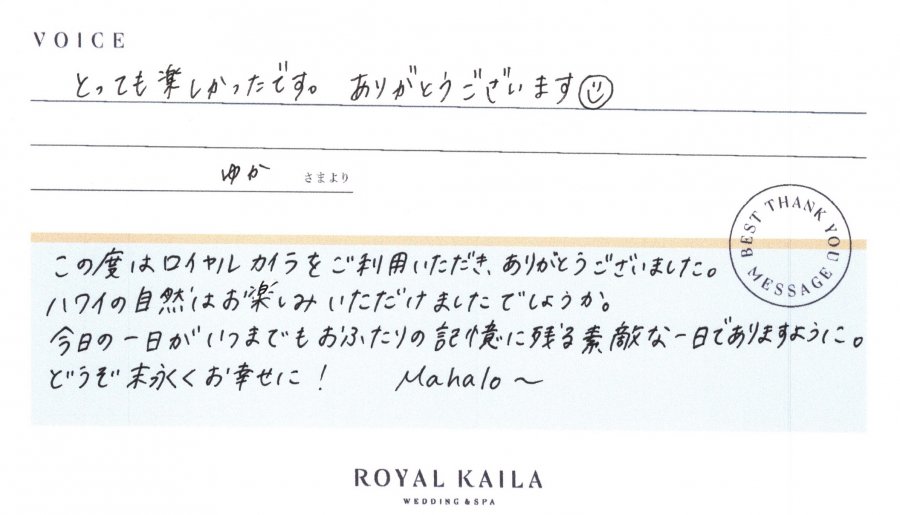 VOICE
とっても楽しかったです。 ありがとうございます
ゆか さまより
BEST THANK YOU MESSAGE
この度はロイヤルカイラをご利用いただき、ありがとうございました。
ハワイの自然はお楽しみいただけましたでしょうか。
今日の一日がいつまでもおふたりの記憶に残る素敵な一日でありますように。
どうぞ末永くお幸せに! Mahalo〜
ROYAL KAILA
WEDDING & SPA